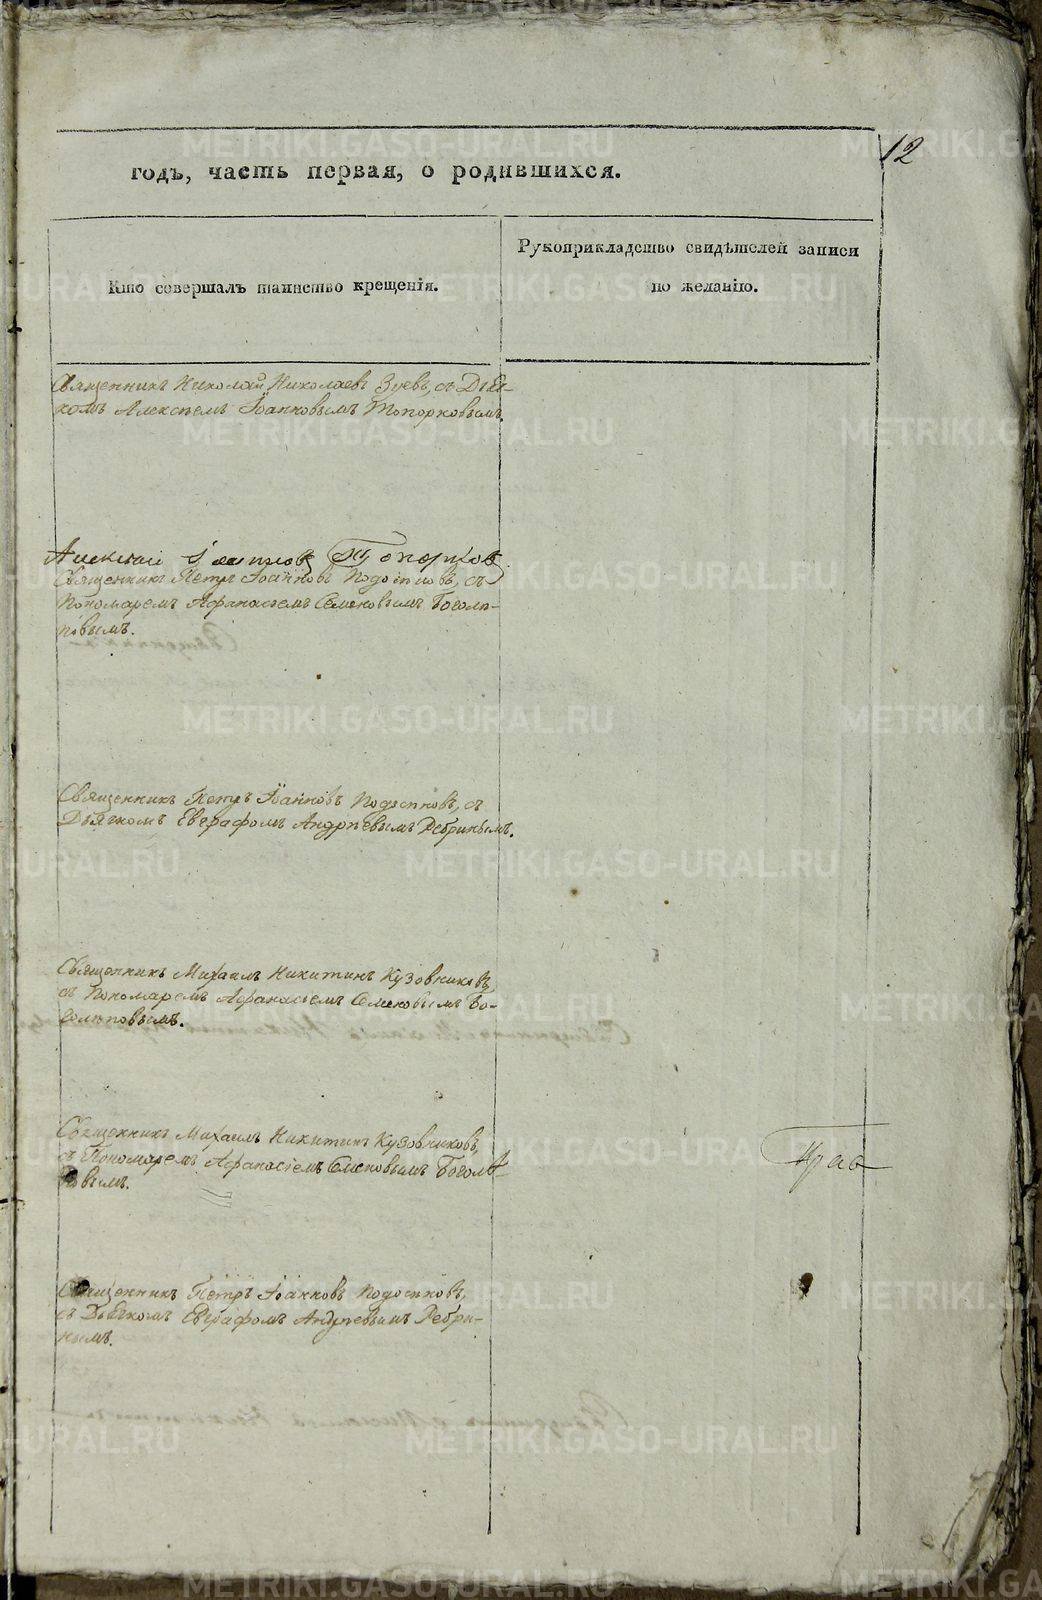 12
годъ, часть первая, о родившихся.
Кто совершалъ таинство крещенія.
Рукоприкладство свидѣтелей записи
по желанію.
Священникъ Николай Николаевъ Зуевъ, съ Дья-
комъ Алексѣемъ Іоанновымъ Топорковымъ.
Алексѣй Іоанновъ Топорковъ
Священникъ Петръ Іоанновъ Подосеновъ, съ
Пономаремъ Афанасіемъ Семеновымъ Боголѣ-
повымъ.
Священникъ Петръ Іоанновъ Подосеновъ, съ
Дьячкомъ Евграфомъ Андреевымъ Ребринымъ.
Священникъ Михаилъ Никитинъ Кузовниковъ,
съ Пономаремъ Афанасіемъ Семеновымъ Бо-
голѣповымъ.
Священникъ Михаилъ Никитинъ Кузовниковъ,
съ Пономаремъ Афанасіемъ Семеновымъ Боголѣ-
повымъ.
Священникъ Петръ Іоанновъ Подосеновъ,
съ Дьячкомъ Евграфомъ Андреевымъ Ребри-
нымъ.
METRIKI.GASO-URAL.RU